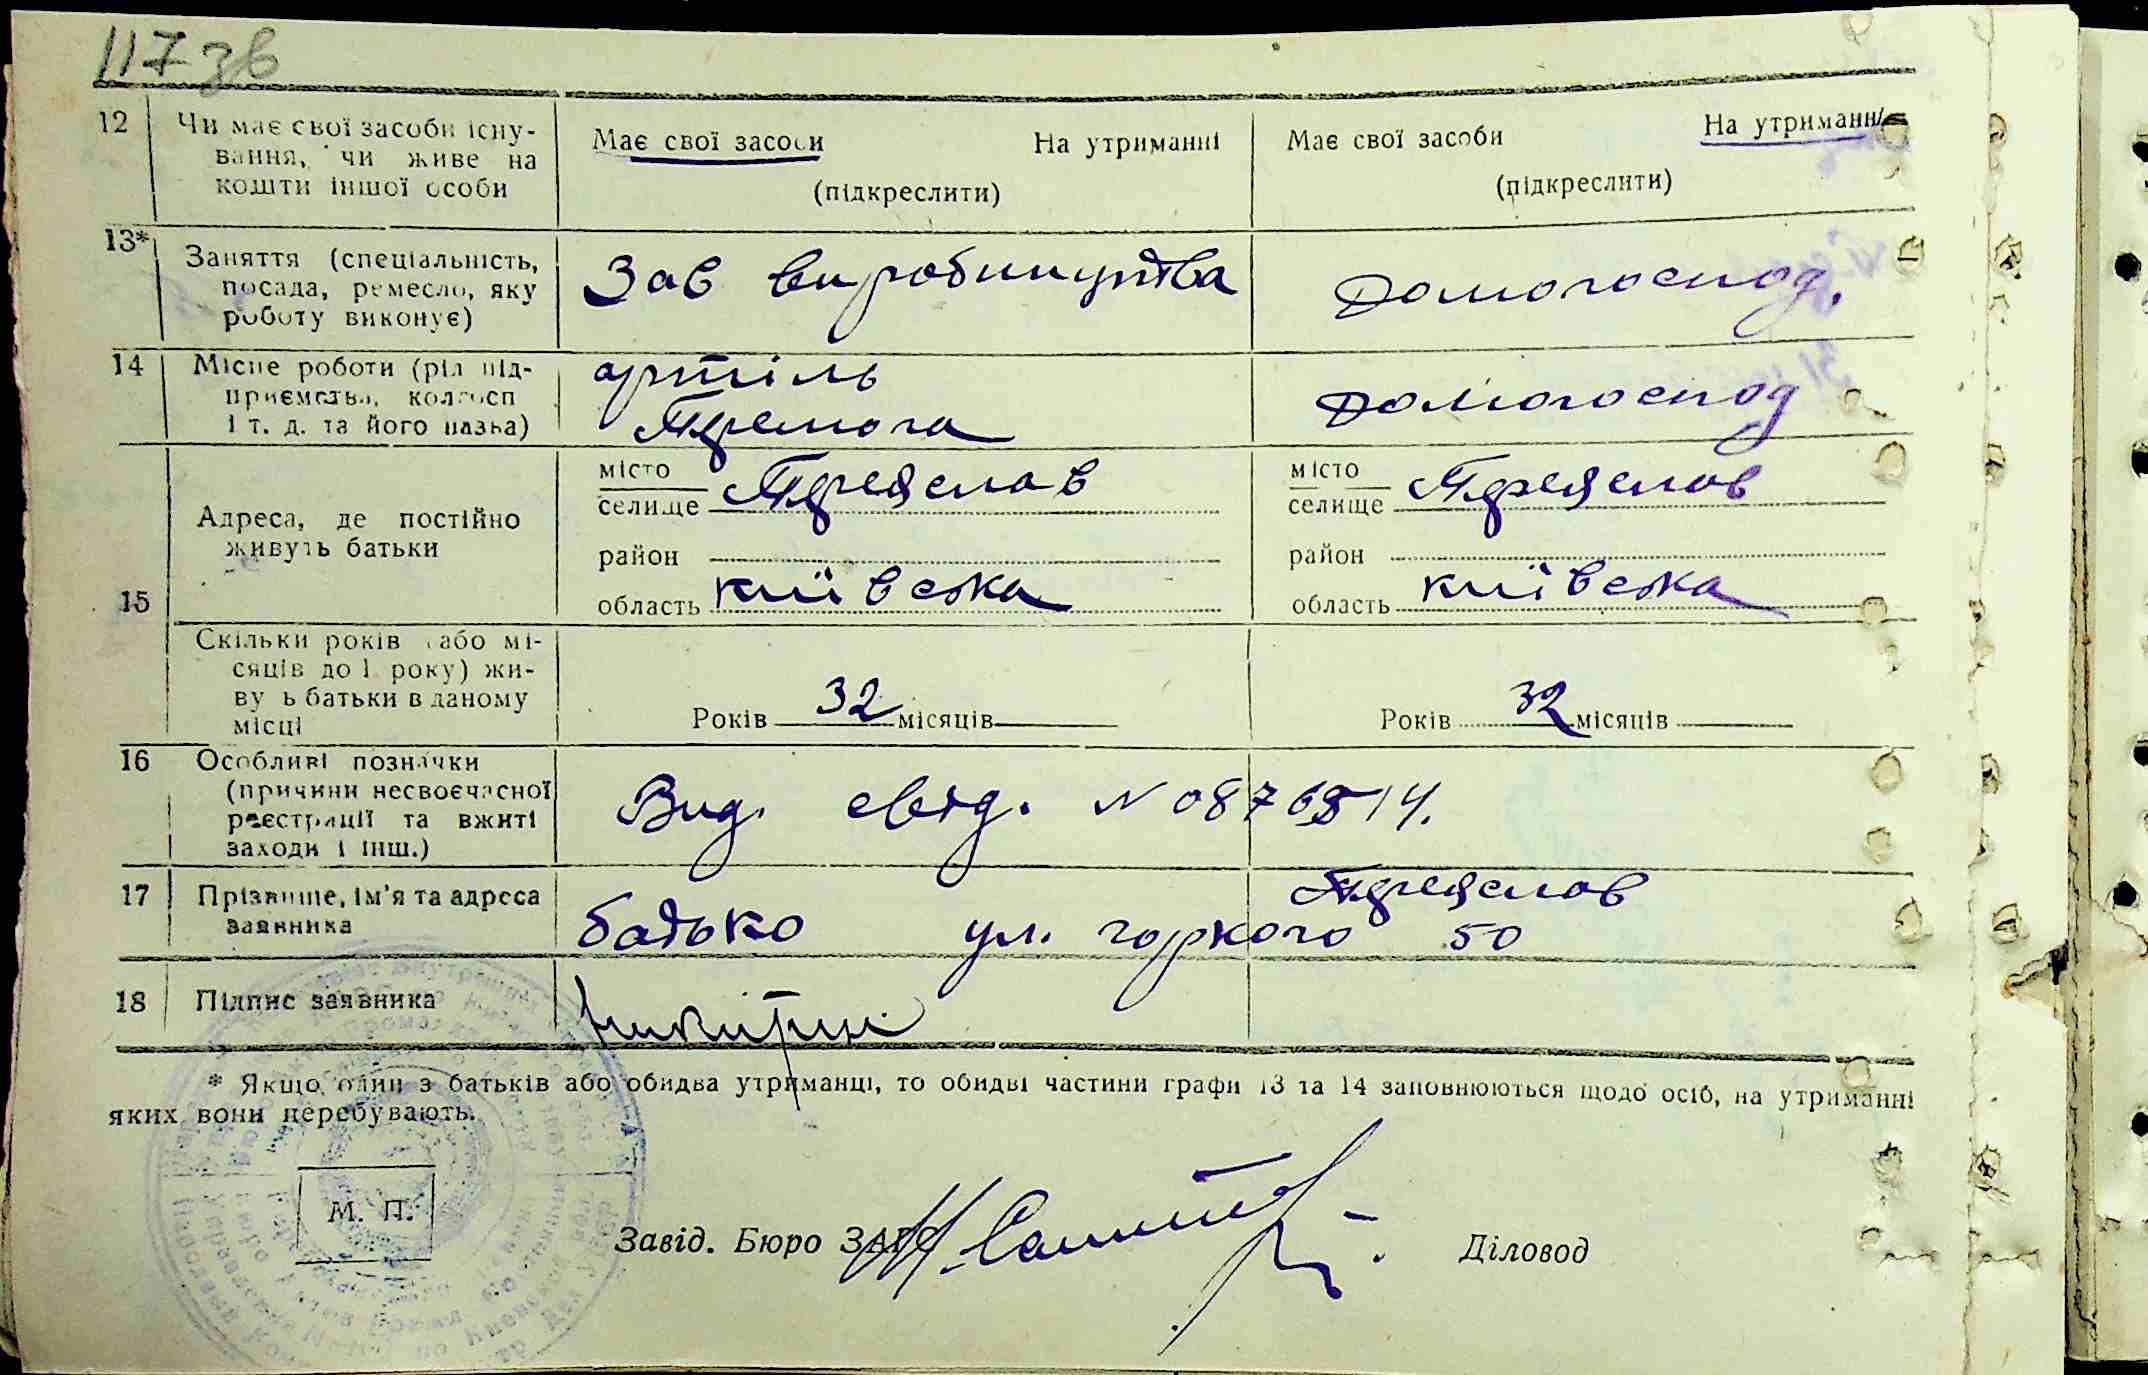 117 зв
12 Чи має свої засоби існу-
вання, чи живе на
кошти іншої особи
Має свої засоби На утриманні
(підкреслити)
Має свої засоби На утриманні
(підкреслити)
13* Заняття (спеціальність,
посада, ремесло, яку
роботу виконує)
Зав виробництва
домогоспод.
14 Місце роботи (рід під-
приємства, колгосп
і т. д. та його назва)
артіль
Перемога
домогоспод
15 Адреса, де постійно
живуть батьки
місто
селище Переяслав
район
область київська
місто
селище Переяслов
район
область київська
Скільки років (або мі-
сяців до 1 року) жи-
вуть батьки в даному
місці
Років 32 місяців
Років 32 місяців
16 Особливі позначки
(причини несвоєчасної
реєстрації та вжиті
заходи і інш.)
Вид. свід. N
17 Прізвище, ім'я та адреса
заявника
Переяслов
батько ул. горкого 50
18 Підпис заявника
* Якщо один з батьків або обидва утриманці, то обидві частини графи 13 та 14 заповнюються щодо осіб, на утриманні
яких вони перебувають.
М. П.
Завід. Бюро ЗАГС Діловод